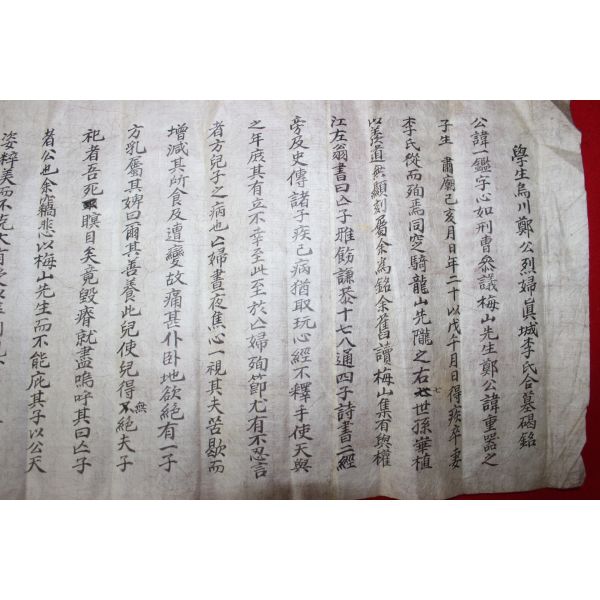 學生烏川鄭公烈婦眞城李氏合墓碣銘
公諱一鑑字心如刑曹叅議梅山先生鄭公諱重器之
子生 肅廟己亥月日年二十以戊午月日得疾卒妻
李氏從而殉焉同窆騎龍山先隴之右七世孫華植
以墓道無顯刻屬余爲銘余舊讀梅山集有與權
江左翁書曰亡子雅飭謙恭十七八通四子詩書二經
旁及史傳諸子疾已病猶取玩心經不釋手使天與
之年庶其有立不幸至此至於亡婦殉節尤有不忍言
者方兒子之病也亡婦晝夜焦心一視其夫苦歇而
增減其所食及遭變故痛甚仆卧地欲絕有一子
方乳屬其婢曰爾其善養此兒使兒得無絕夫子
祀者吾死瞑目矣竟毀瘠就盡嗚呼其曰亡子
者公也余竊悲以梅山先生而不能庇其子以公天
姿粹美而不克大有